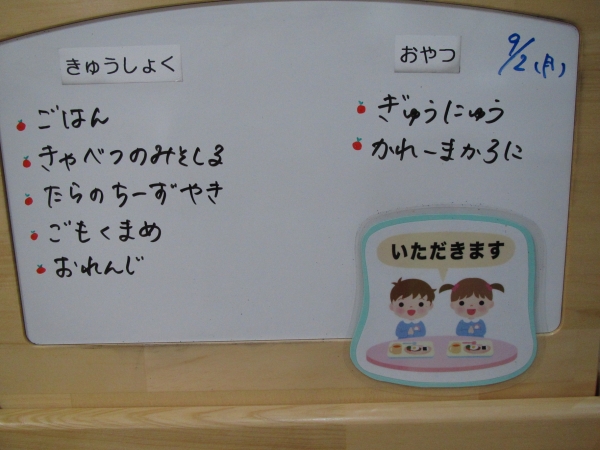 きゅうしょく
ごはん
きゃべつのみそしる
たらのちーずやき
ごもくまめ
おれんじ
おやつ
9/2(月)
ぎゅうにゅう
かれーまかろに
いただきます